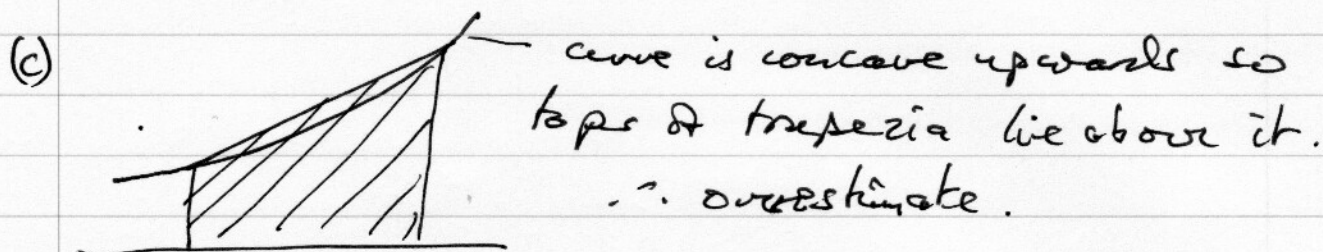 (c) curve is concave upwards so
tops of trapezia lie above it.
∴ overestimate.